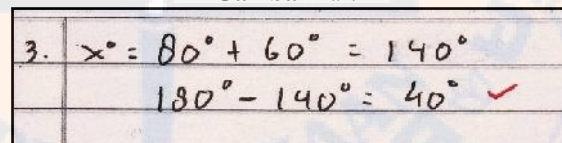 3. x° = 80° + 60° = 140°
180° - 140° = 40° ✓